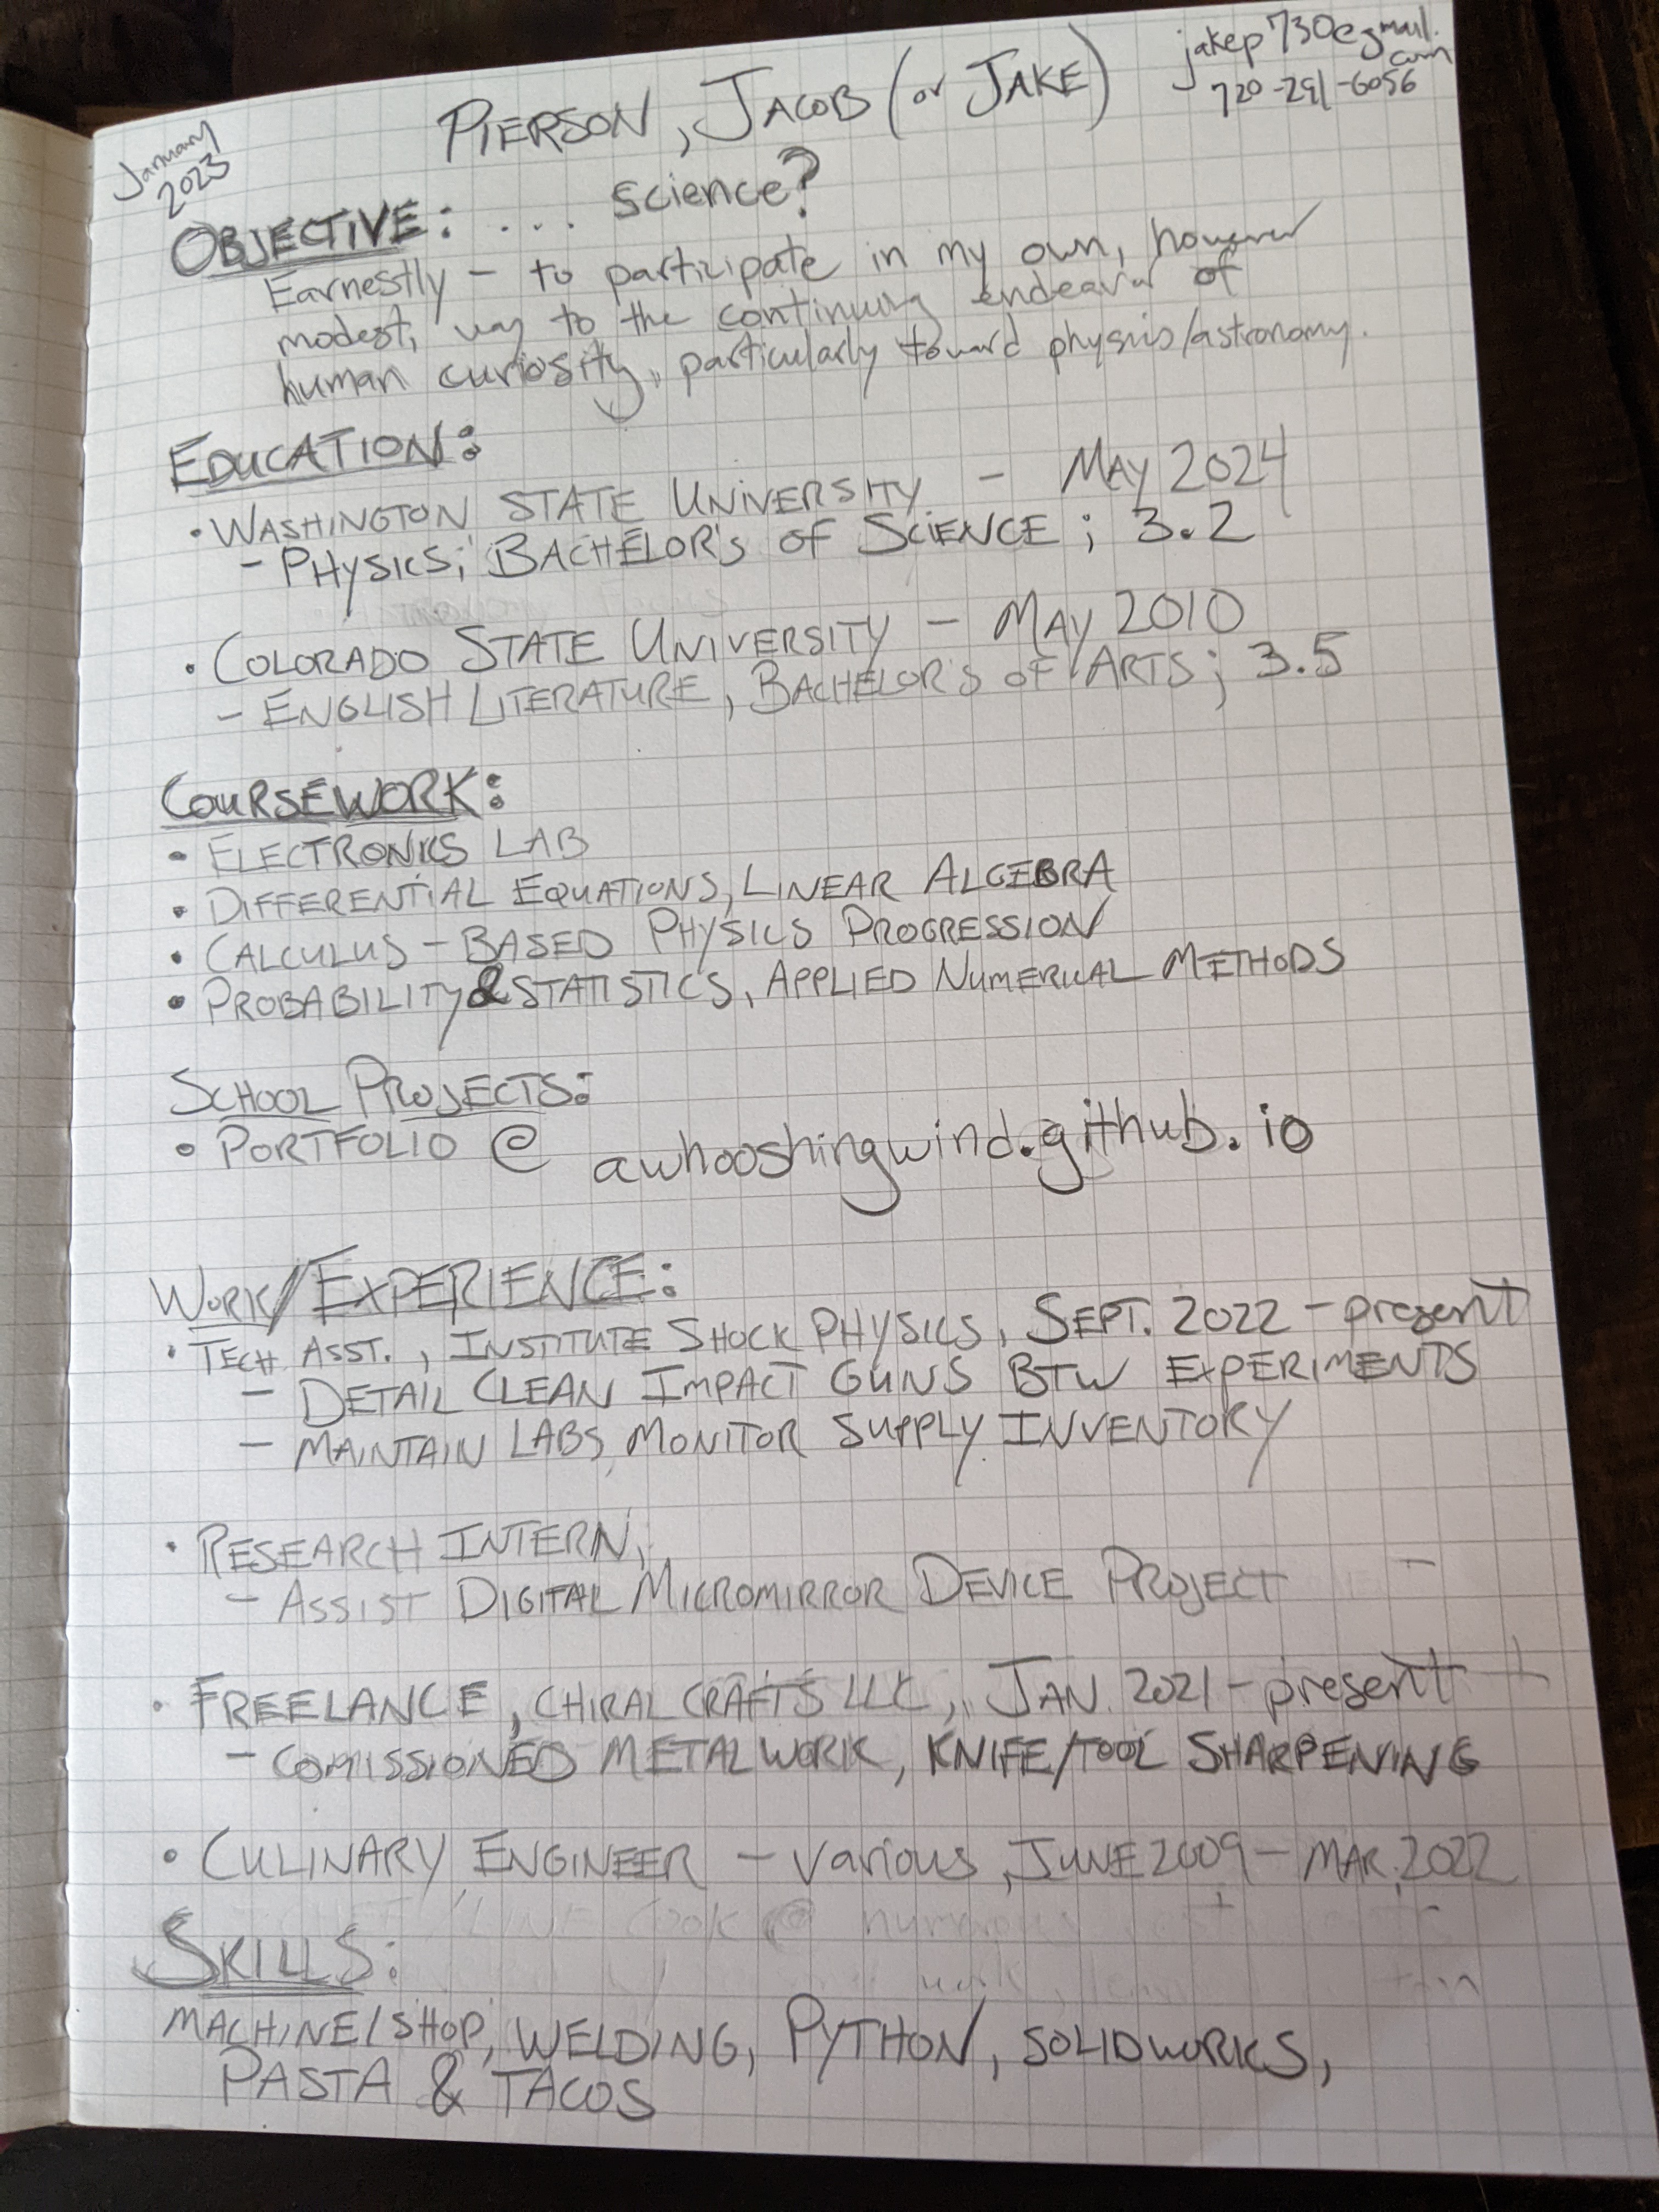 January
2023
PIERSON, JACOB (or JAKE)
jakep730@gmail.
com
720-291-6056
OBJECTIVE: ... science?
Earnestly - to participate in my own, however
modest, way to the continuing endeavor of
human curiosity, particularly toward physics/astronomy.
EDUCATION:
• WASHINGTON STATE UNIVERSITY - MAY 2024
- PHYSICS, BACHELOR'S OF SCIENCE; 3.2
• COLORADO STATE UNIVERSITY - MAY 2010
- ENGLISH LITERATURE, BACHELOR'S OF ARTS; 3.5
COURSEWORK:
• ELECTRONICS LAB
• DIFFERENTIAL EQUATIONS, LINEAR ALGEBRA
• CALCULUS-BASED PHYSICS PROGRESSION
• PROBABILITY & STATISTICS, APPLIED NUMERICAL METHODS
SCHOOL PROJECTS:
• PORTFOLIO @ awhooshingwind.github.io
WORK/EXPERIENCE:
• TECH ASST., INSTITUTE SHOCK PHYSICS, SEPT. 2022 - present
- DETAIL CLEAN IMPACT GUNS BTW EXPERIMENTS
- MAINTAIN LABS, MONITOR SUPPLY INVENTORY
• RESEARCH INTERN,
- ASSIST DIGITAL MICROMIRROR DEVICE PROJECT
• FREELANCE, CHIRAL CRAFTS LLC, JAN. 2021 - present
- COMISSIONED METALWORK, KNIFE/TOOL SHARPENING
• CULINARY ENGINEER - various, JUNE 2009 - MAR. 2022
LINE COOK @
SKILLS:
MACHINE/SHOP, WELDING, PYTHON, SOLIDWORKS,
PASTA & TACOS